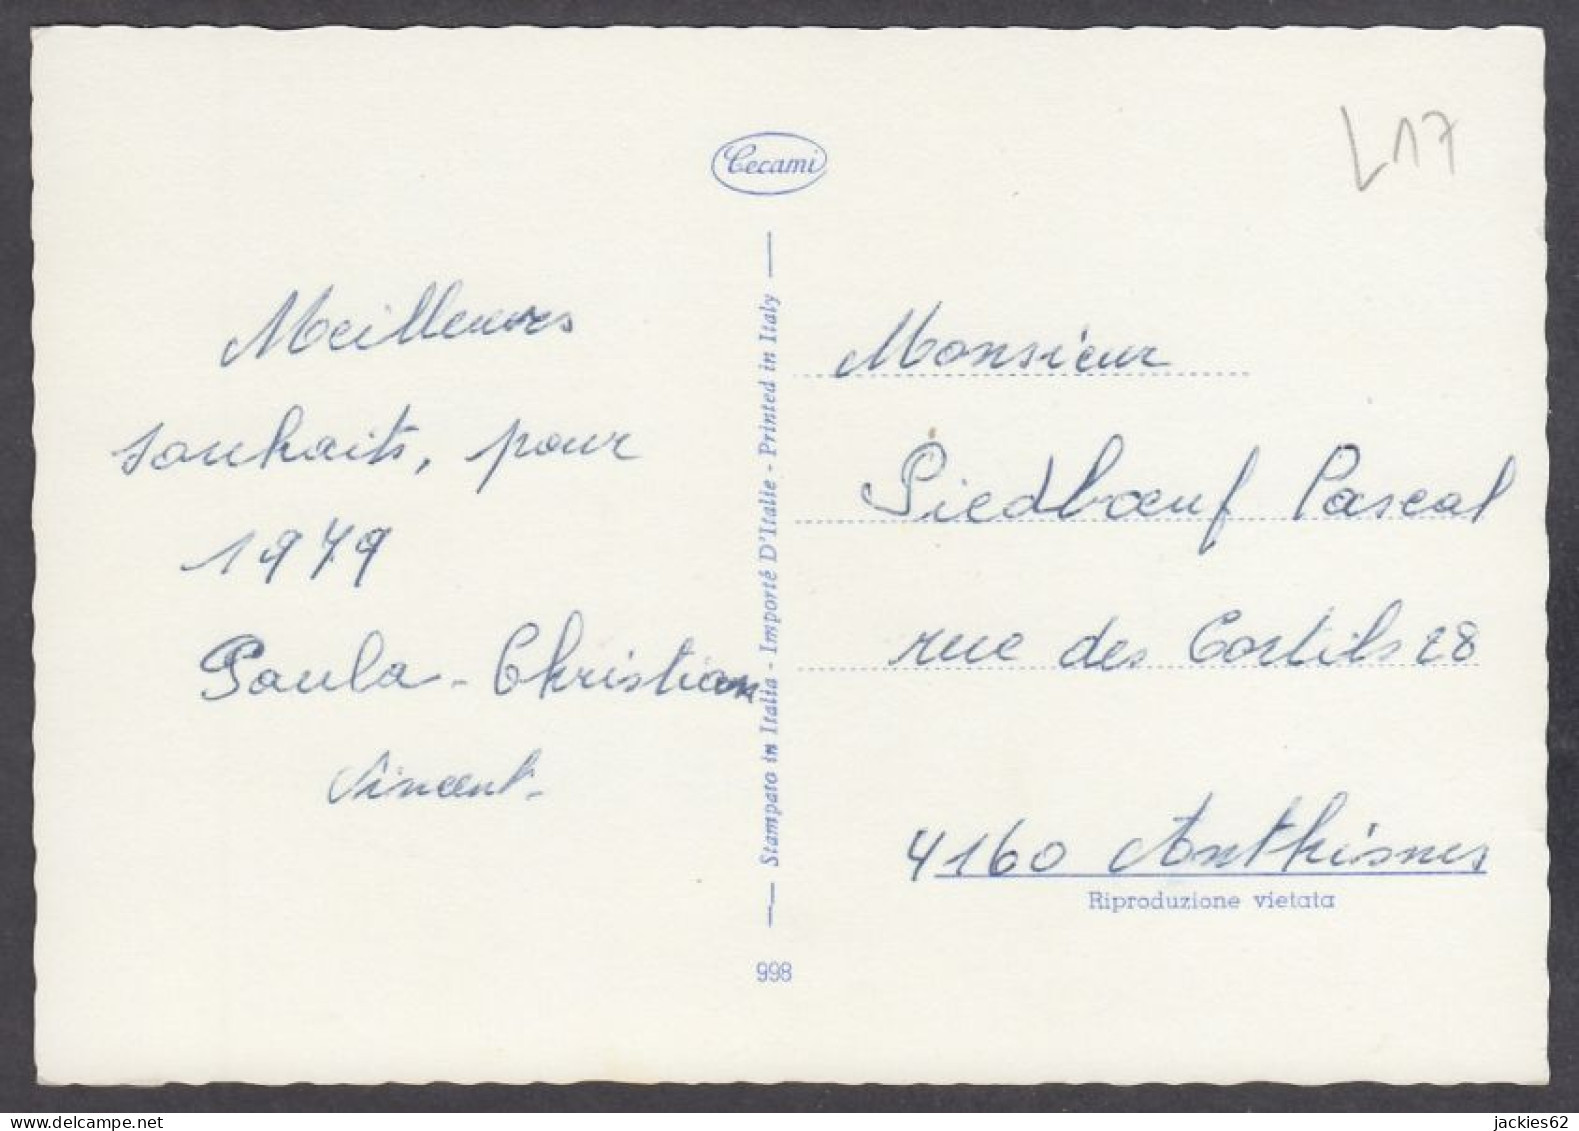 Cecami
L17
Meilleures
souhaits, pour
1979
Paula - Christian
Vincent.
Stampato in Italia - Importé D'Italie - Printed in Italy
Monsieur
Piedbœuf Pascal
rue des Cortils 28
4160 Anthisnes
Riproduzione vietata
998
delcampe.net
jackies62